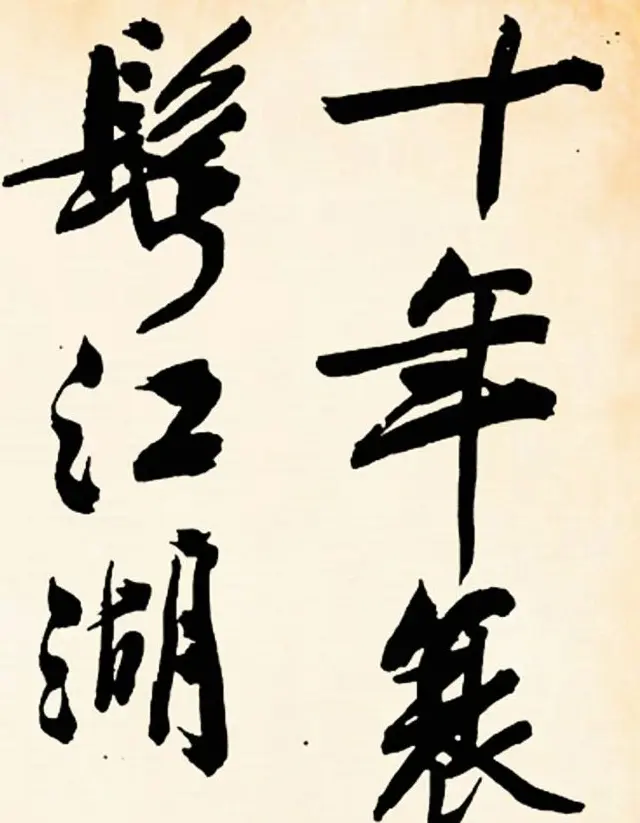 十年衰
鬓江湖